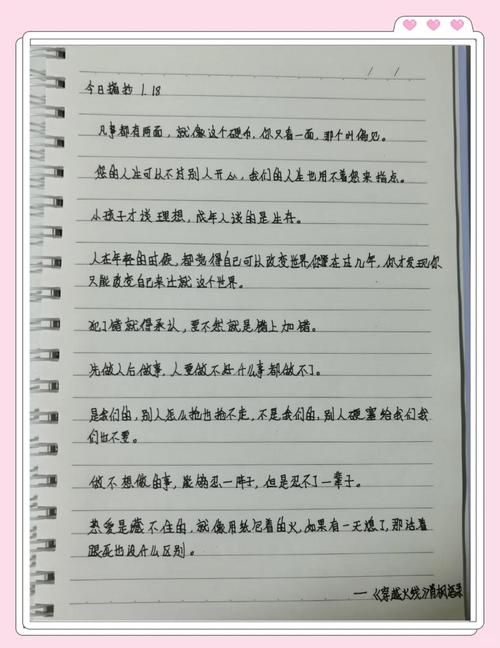 今日摘抄 1.18
凡事都有两面，就像这个硬币，你只看一面，那个叫偏见。
您的人生可以不为别人开心，我们的人生也用不着您来指点。
小孩子才谈理想，成年人谈的是生存。
人在年轻的时候，都觉得自己可以改变世界，你要在过几年，你才发现你
只能改变自己来迁就这个世界。
犯了错就得承认，要不然就是错上加错。
先做人后做事，人要做不好什么事都做不了。
是我们的，别人怎么抢也抢不走，不是我们的，别人硬塞给我们我
们也不要。
做不想做的事，能够忍一阵子，但是忍不了一辈子。
热爱是藏不住的，就像用纸包着的火，如果有一天熄了，那活着
跟死也没什么区别。
—《穿越火线》肖枫语录